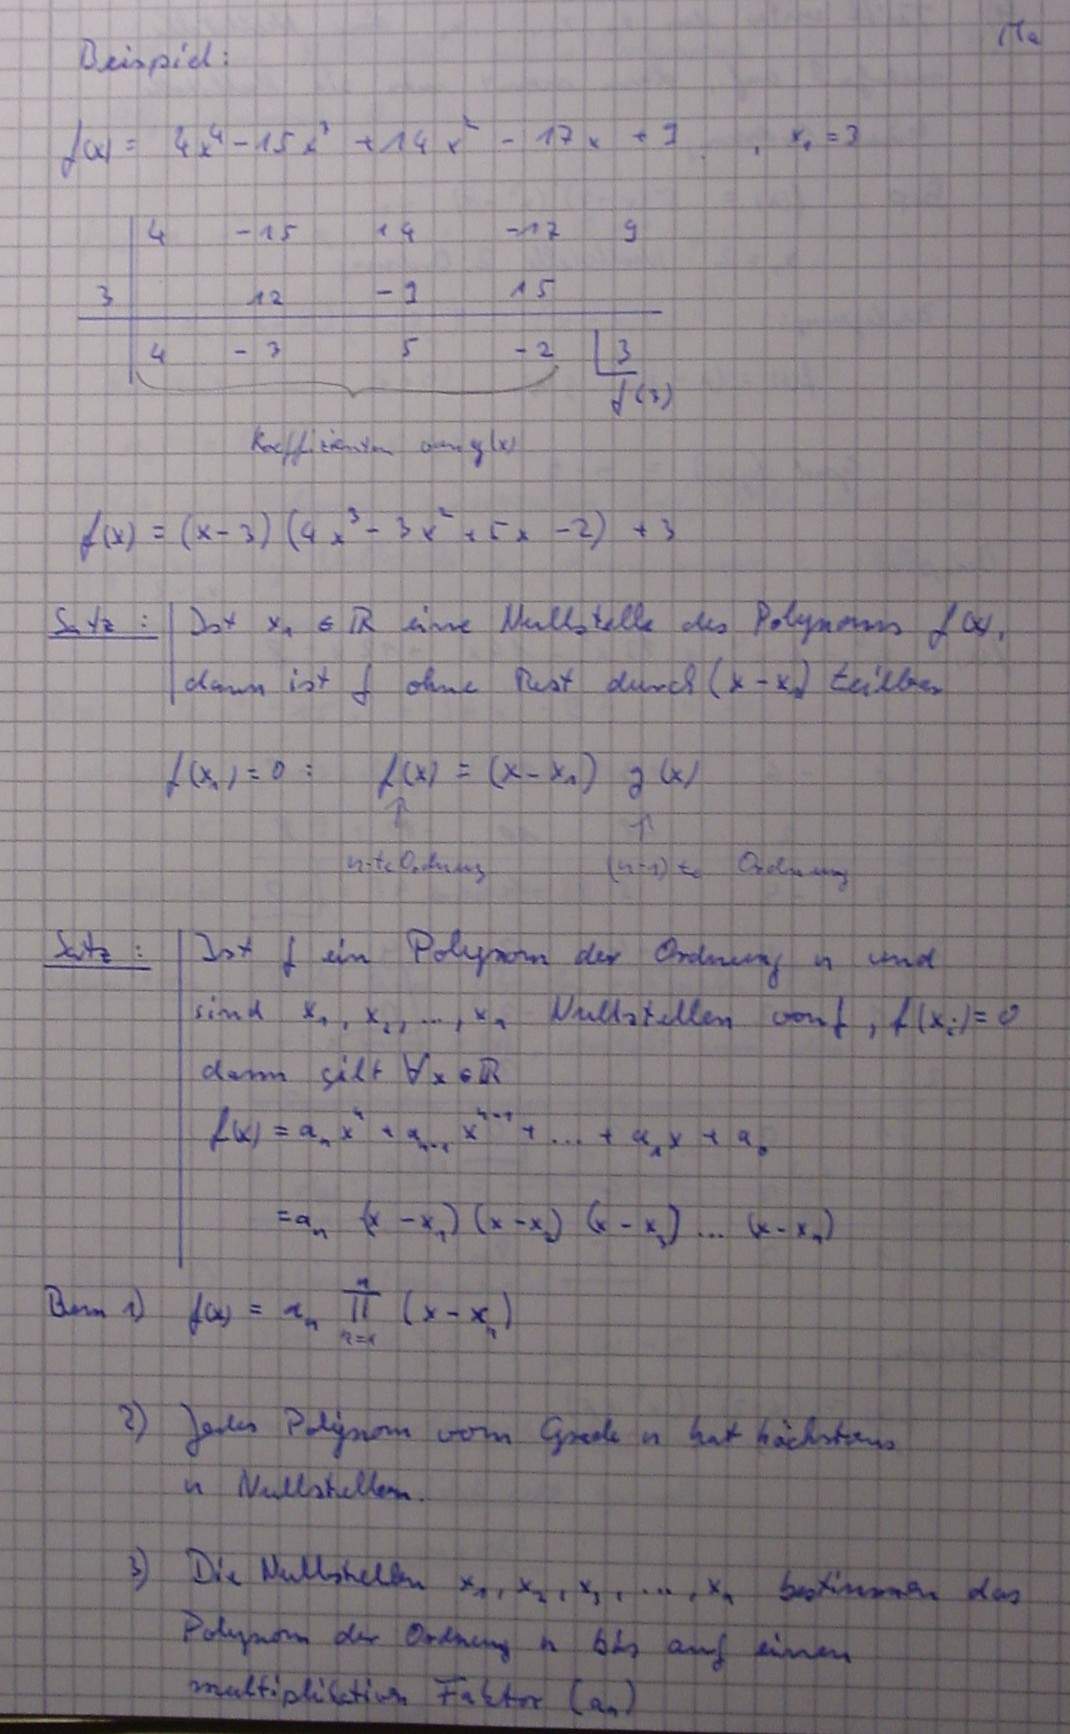 Ma
Beispiel:
f(x) = 4x⁴ - 15x³ + 14x² - 17x + 9 , x₁ = 3
4 -15 14 -17 9
3 12 -9 15
4 -3 5 -2 3
f(3)
Koeffizienten von g(x)
f(x) = (x-3) (4x³ - 3x² + 5x - 2) + 3
Satz: Ist x₁ ∈ ℝ eine Nullstelle des Polynoms f(x),
dann ist f ohne Rest durch (x - x₁) teilbar
f(x₁) = 0 : f(x) = (x - x₁) g(x)
↑ ↑
n-te Ordnung (n-1) te Ordnung
Satz: Ist f ein Polynom der Ordnung n und
sind x₁, x₂, ..., xₙ Nullstellen von f, f(xᵢ) = 0
dann gilt ∀x ∈ ℝ
f(x) = aₙxⁿ + aₙ₋₁xⁿ⁻¹ + ... + a₁x + a₀
= aₙ (x - x₁) (x - x₂) (x - x₃) ... (x - xₙ)
Bem 1) f(x) = aₙ ∏ (x - xₙ)
2) Jedes Polynom vom Grade n hat höchstens
n Nullstellen.
3) Die Nullstellen x₁, x₂, x₃, ..., xₙ bestimmen das
Polynom der Ordnung n bis auf einen
multiplikativen Faktor (aₙ)